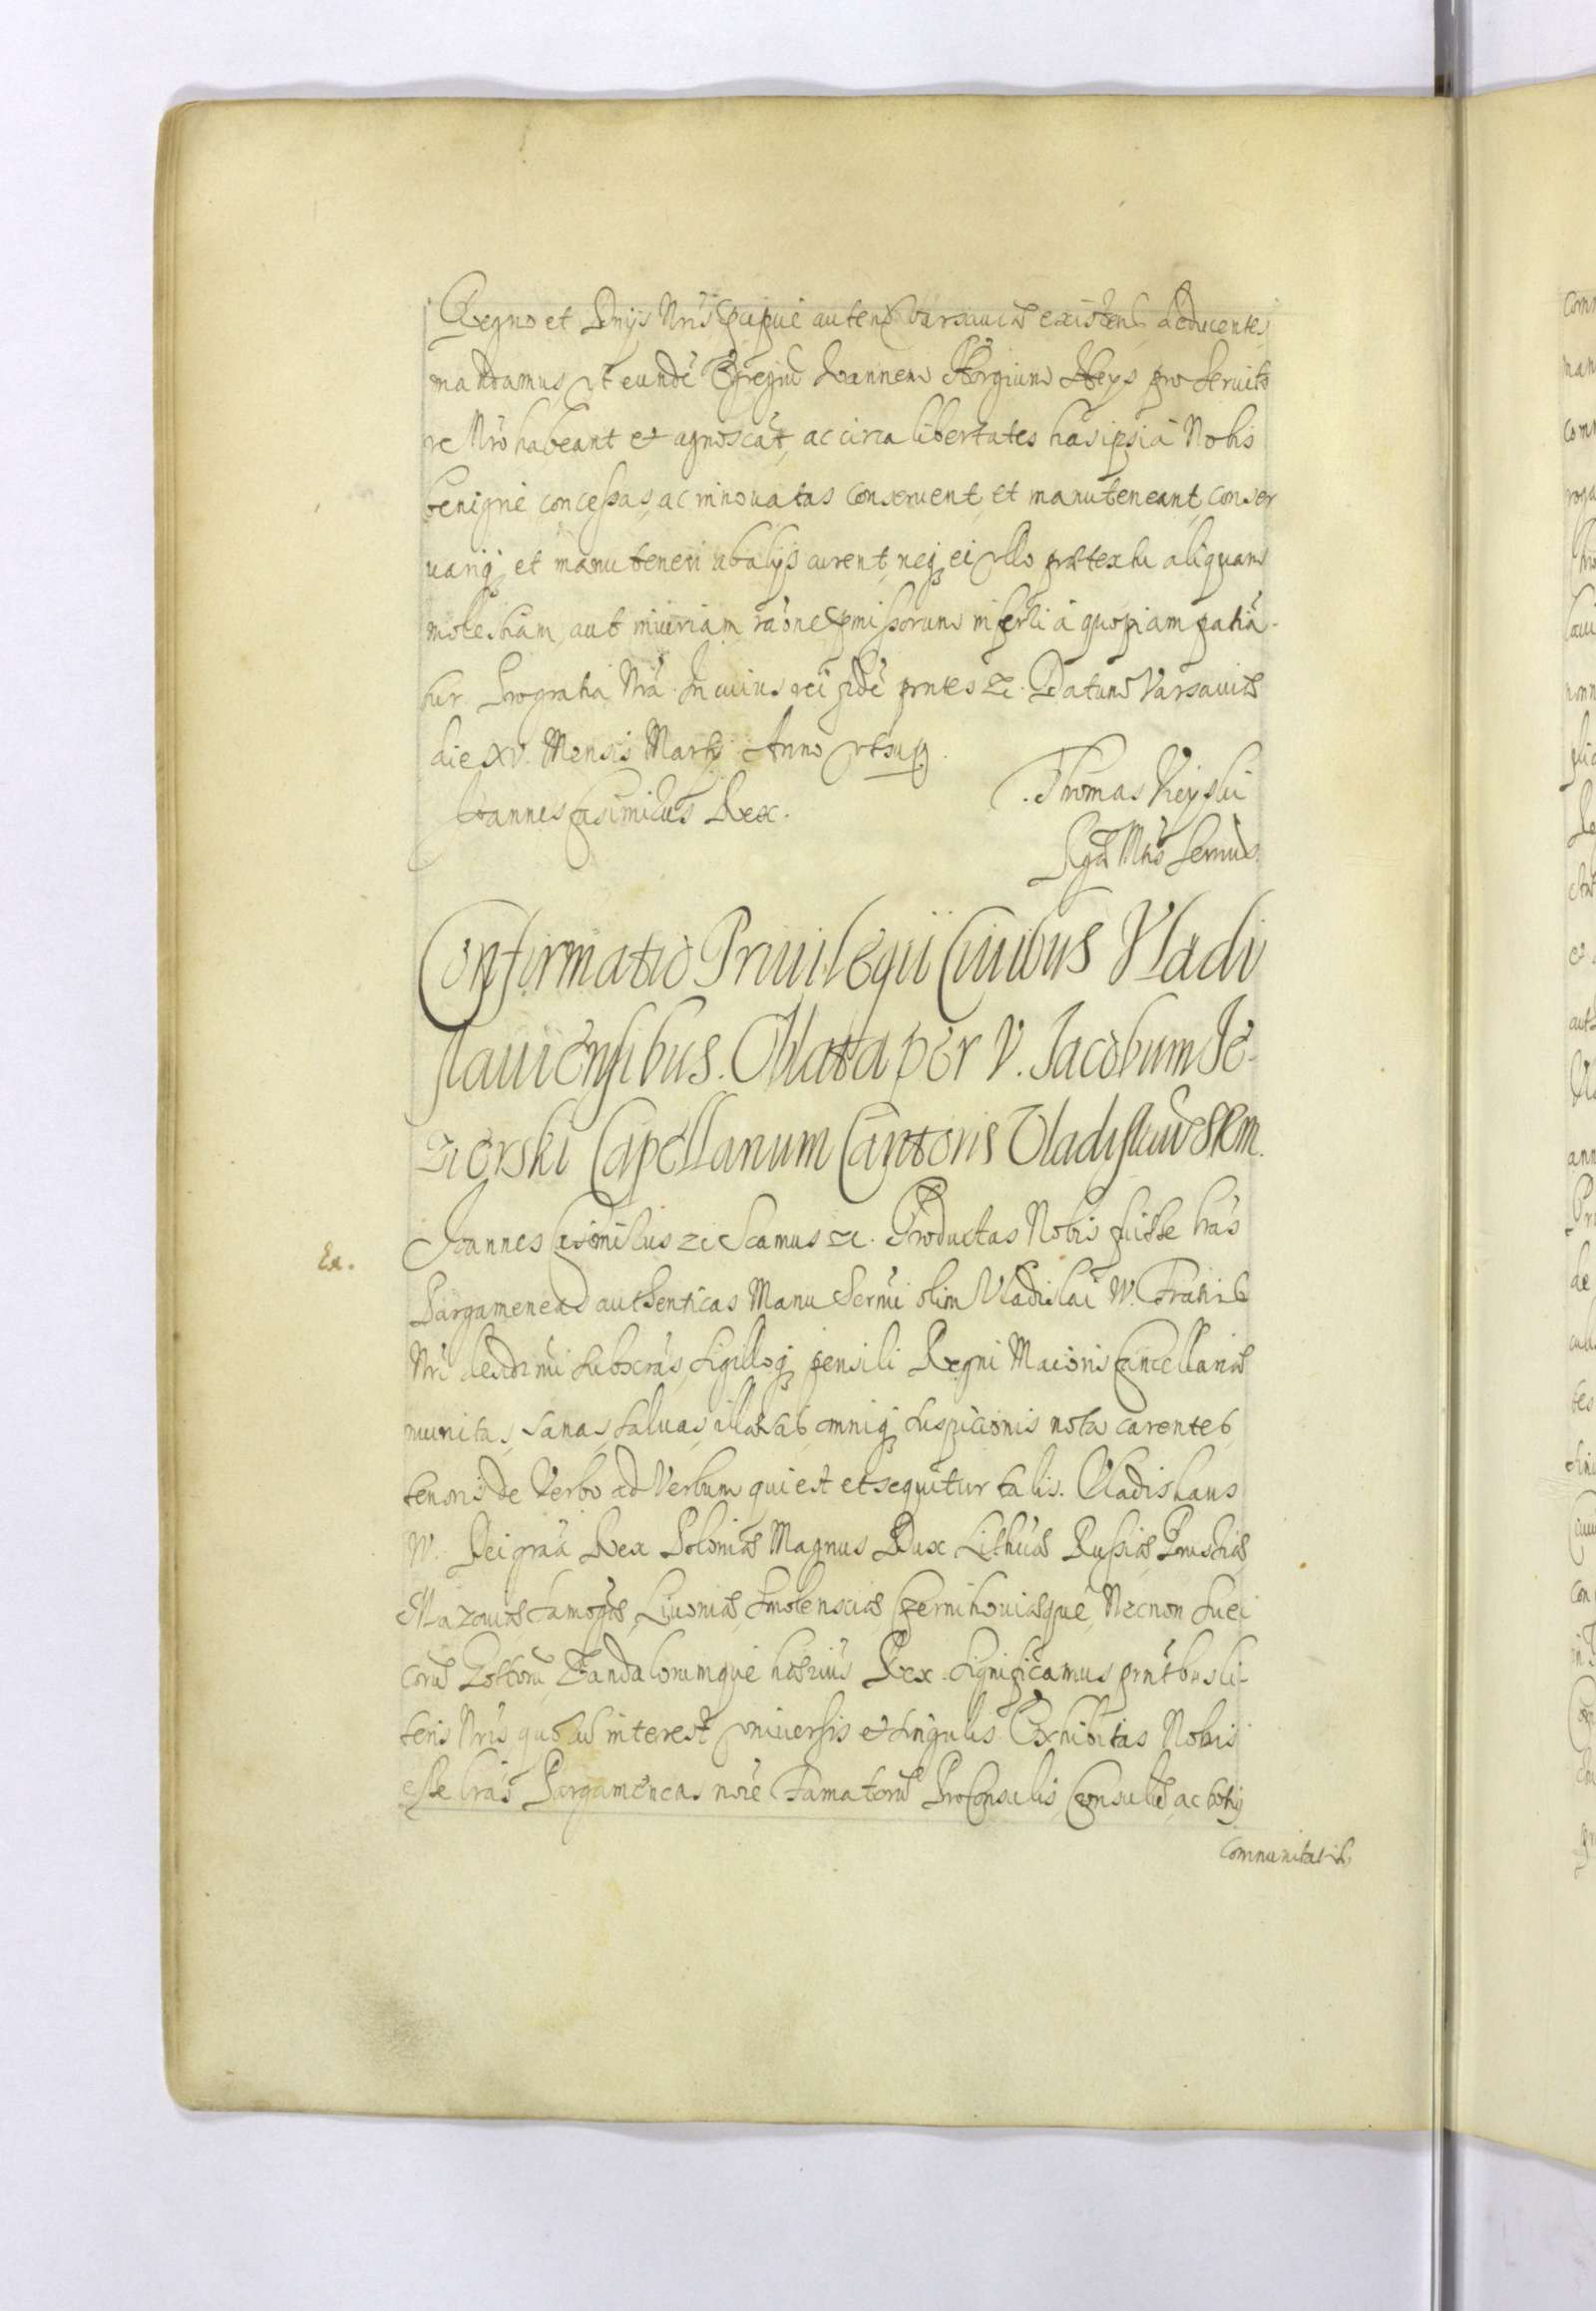 Regno et Dnijs Nris pcipue autem Varsauiæ existent adducentes
mandamus vt eundē Egregiū Ioannem Georgium Heys pro Seruito
re Nro habeant et agnoscāt, ac circa libertates hās ipsi à Nobis
benigne concessas, ac innouatas conseruent, et manuteneant, conser
uariq et manuteneri ab alijs curent, neq ei vllo prætextu aliquam
molestiam, aut iniuriam rāōne pmissorum inferri à quopiam patiā
tur. Pro gratia Nrā. In cuius rei fidē prntes &c. Datum Varsauiæ
die XV. Mensis Martij Anno vt supra.
Ioannes Casimirus Rex.
Thomas
Rgæ Mtis
Confirmatio Priuilegii Ciuibus Vladi
slauiensibus. Oblata per V. Iacobum Ie-
zierski Capellanum Cantoris Vladislauiē SRM.
Ex.
Ioannes Casimirus &c Scamus &c. Productas Nobis fuisse lrās
Pargameneas authenticas Manu Sermi olim Vladislai IV. Fratris
Nri desidrmi subscrās, Sigilloq pensili Regni Maioris Cancellariæ
munitas, sanas, saluas, illæsas, omniq suspicionis nota carentes,
tenoris de Verbo ad Verbum qui est et sequitur talis. Vladislaus
IV. Dei gratā Rex Poloniæ Magnus Dux Lithuæ Russiæ, Prussiæ,
Mazouiæ, Samogæ, Liuoniæ, Smolensciæ, Czernihouiæque, Necnon Sue
corū Gottorū, Vandalorumque hæriūs Rex. Significamus prntbus li-
teris Nris quorum interest, vniuersis et singulis. Exhibitas Nobis
esse lrās Pargameneas noīe Famatorū Proconsulis, Consulū, ac totij
communitatis,